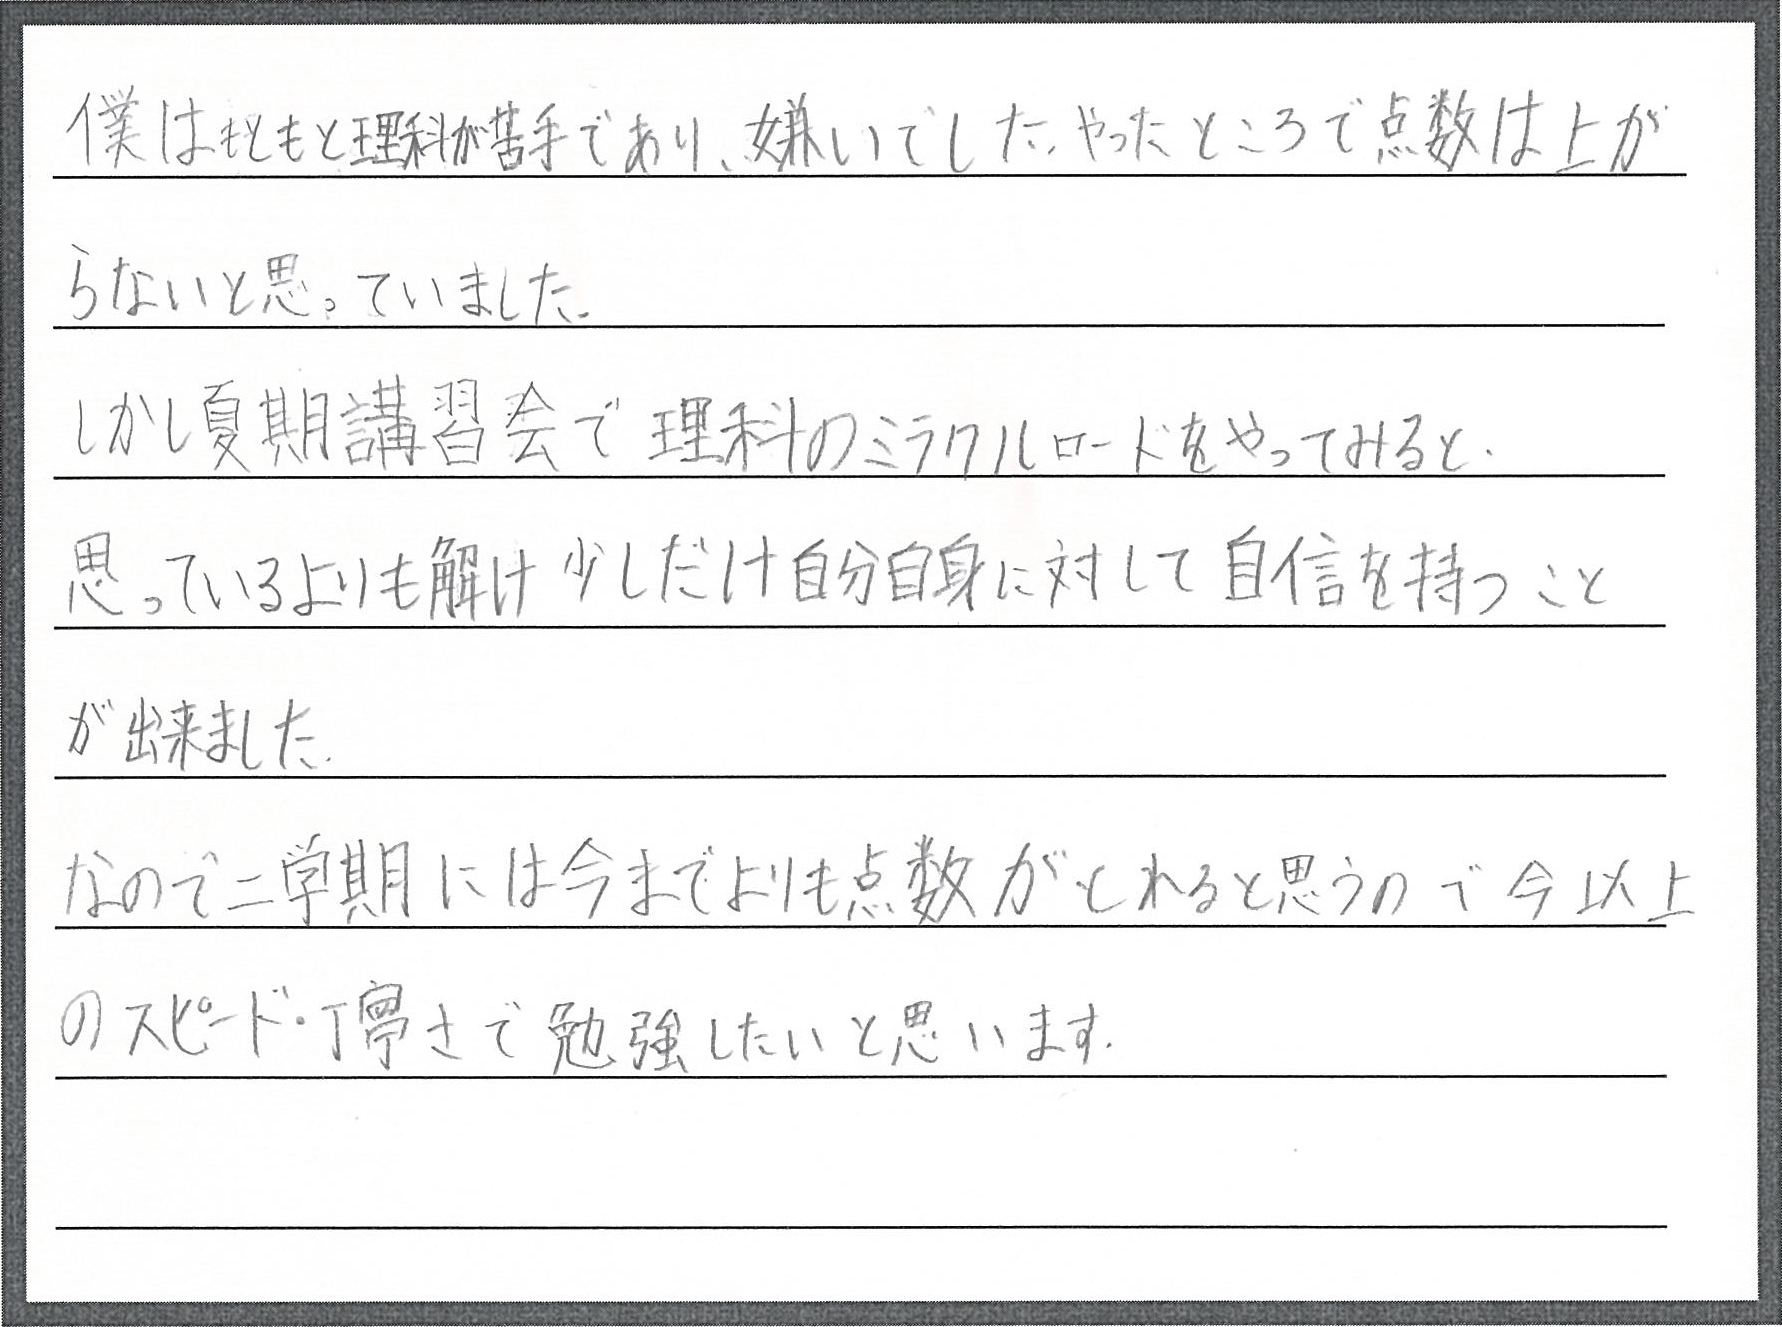 僕はもともと理科が苦手であり、嫌いでした。やったところで点数は上が
らないと思っていました。
しかし夏期講習会で理科のミラクルロードをやってみると、
思っているよりも解け少しだけ自分自身に対して自信を持つこと
が出来ました。
なので二学期には今までよりも点数がとれると思うので今以上
のスピード・丁寧さで勉強したいと思います。